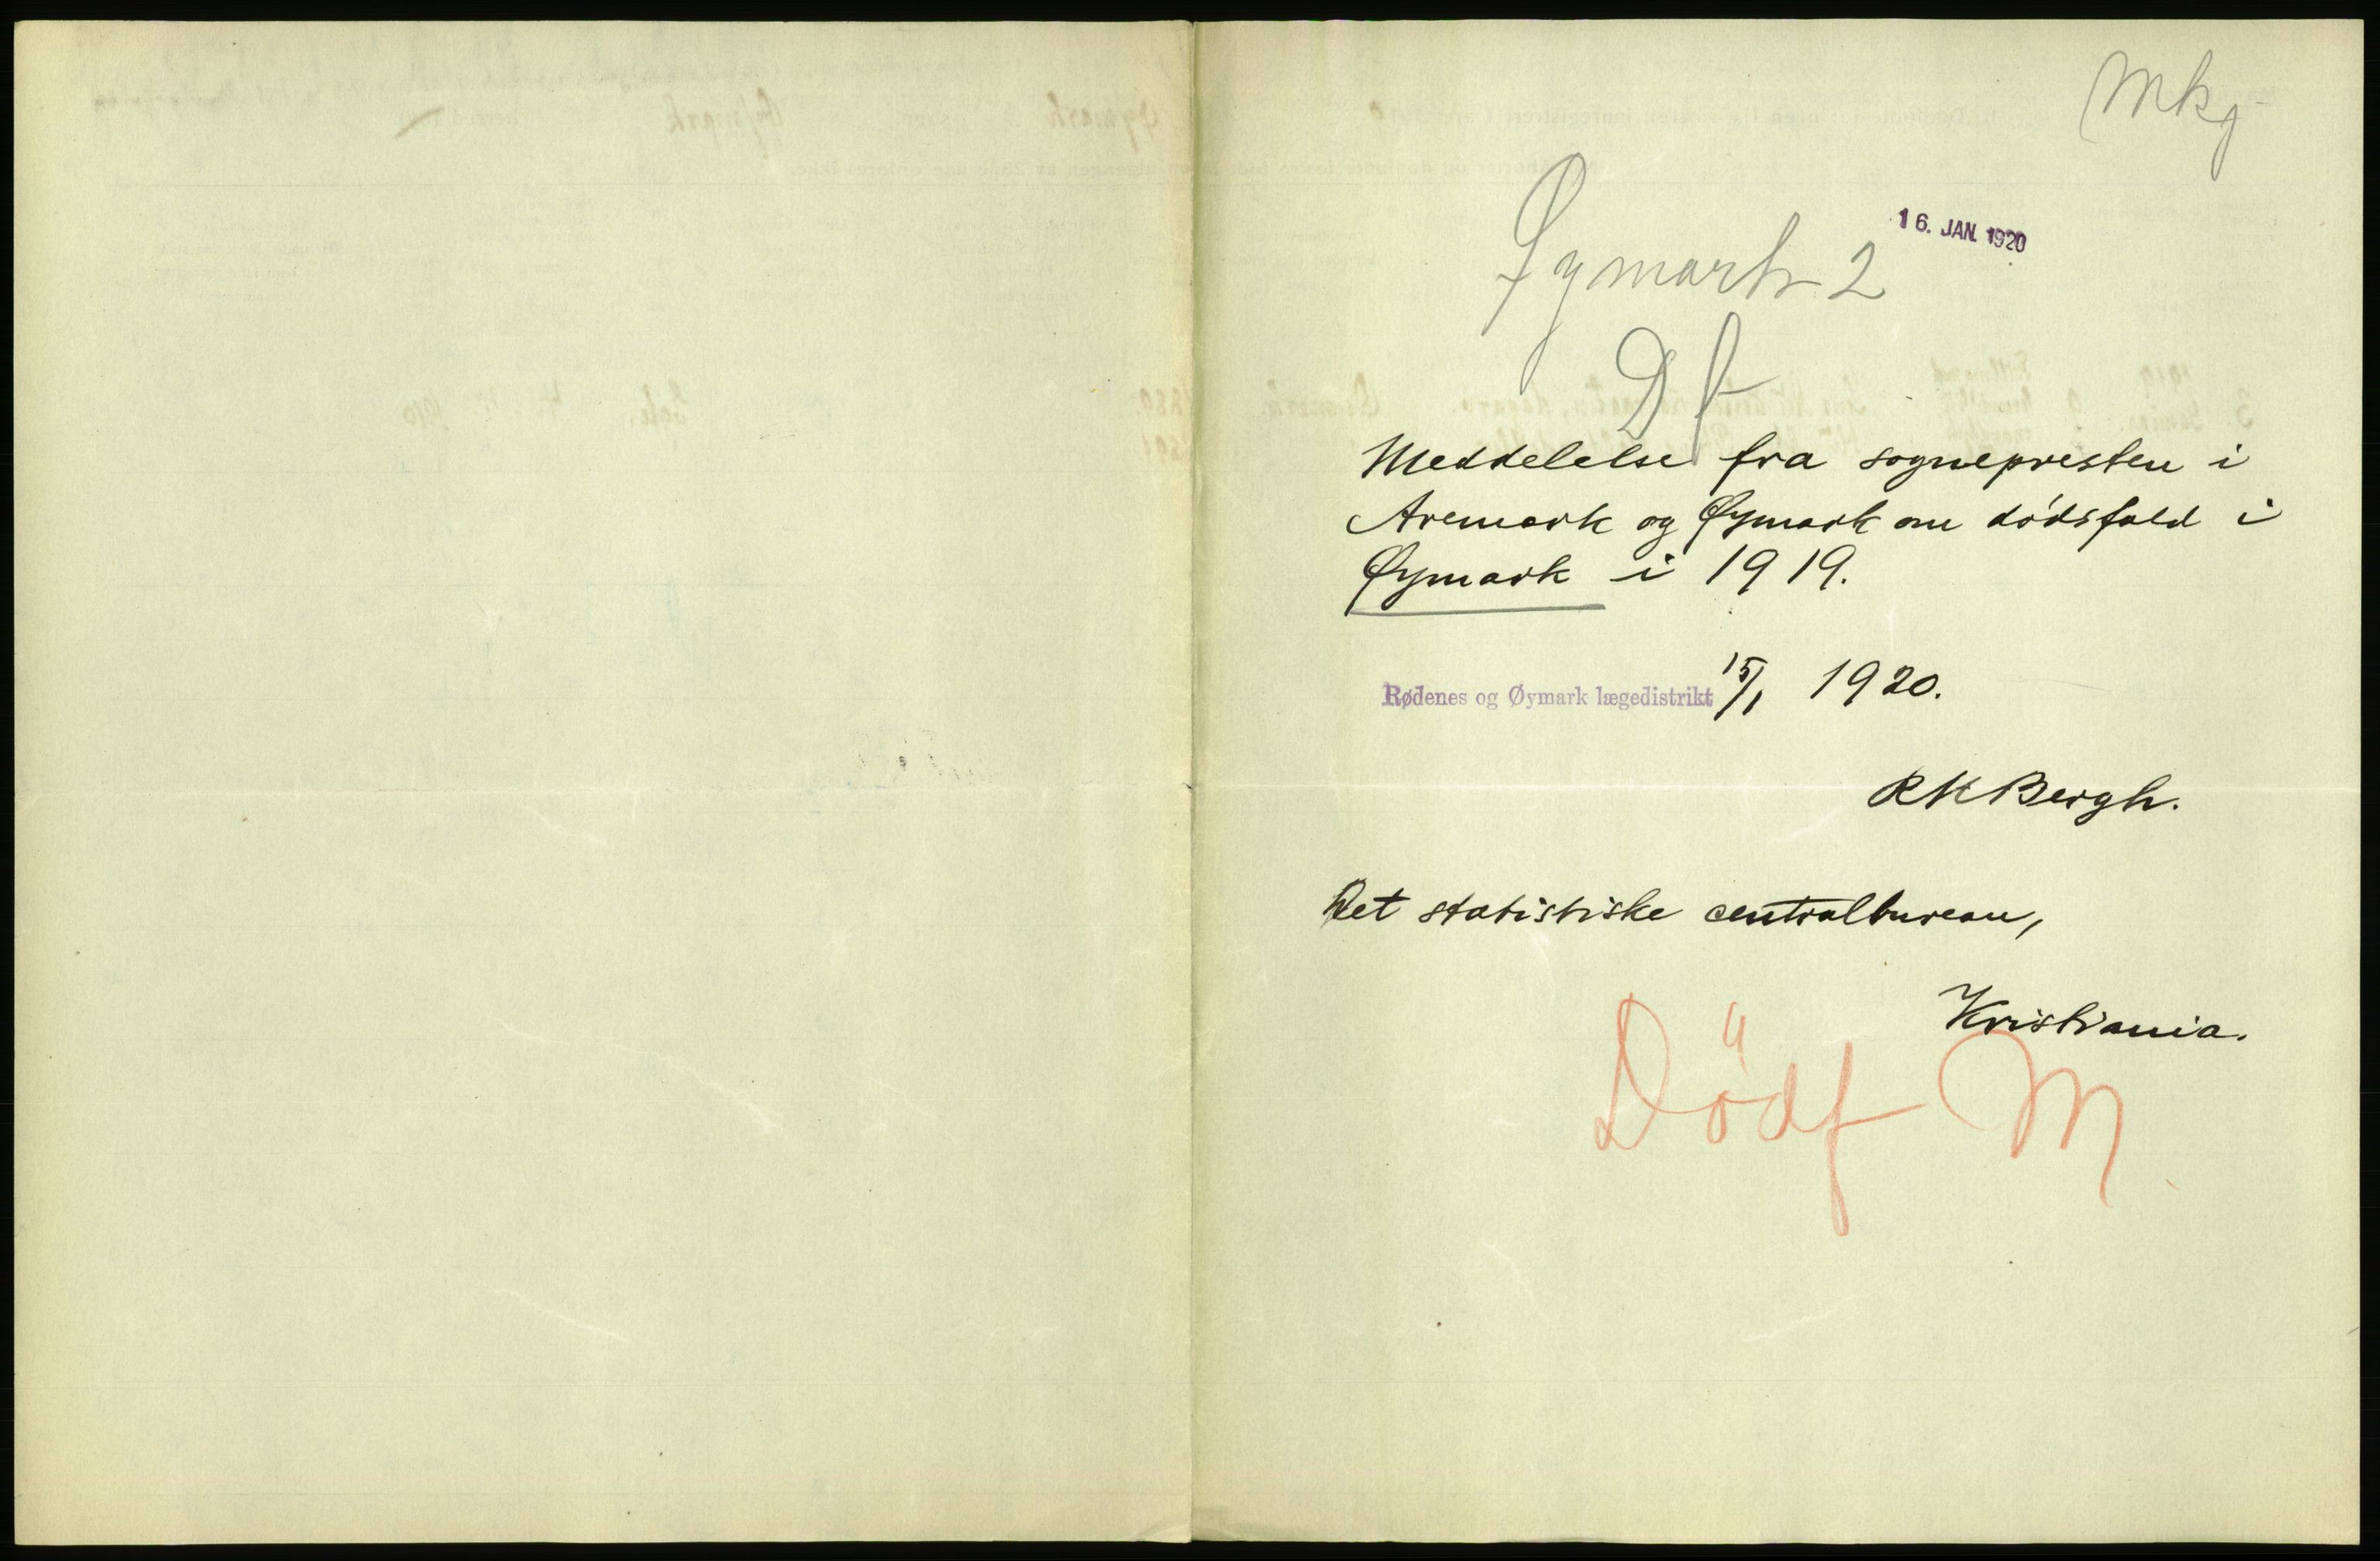 Mkg
16. JAN. 1920
Øymark 2
Df
Meddelelse fra sognepresten i
Aremark og Øymark om dødsfald i
Øymark i 1919.
Rødenes og Øymark lægedistrikt 15/1 1920.
RKBergh.
Det statistiske centralbureau,
Kristiania.
Dödf M